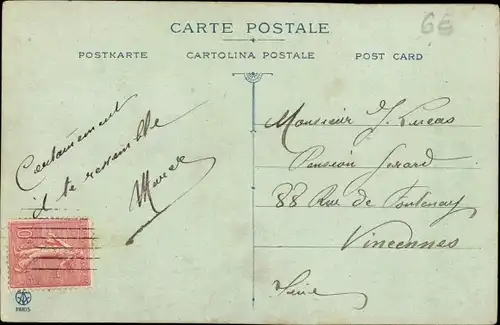 CARTE POSTALE
POSTKARTE CARTOLINA POSTALE POST CARD
Certainement
il te ressemble
Marcel
Monsieur J. Lucas
Pension Girard
88 Rue de Fontenay
Vincennes
Seine
10
PARIS